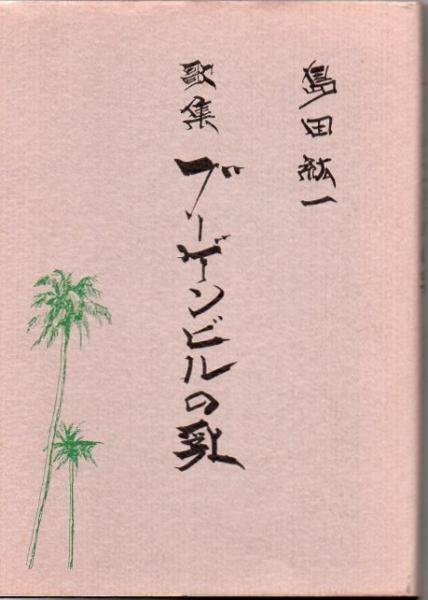 島田紘一
歌集 ブーゲンビルの乳